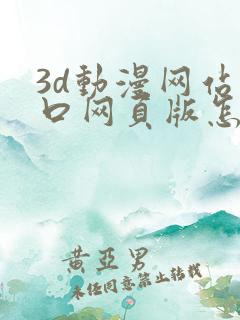 3d動漫网站
口网页版怎
黄亞男
未经同意禁止转载